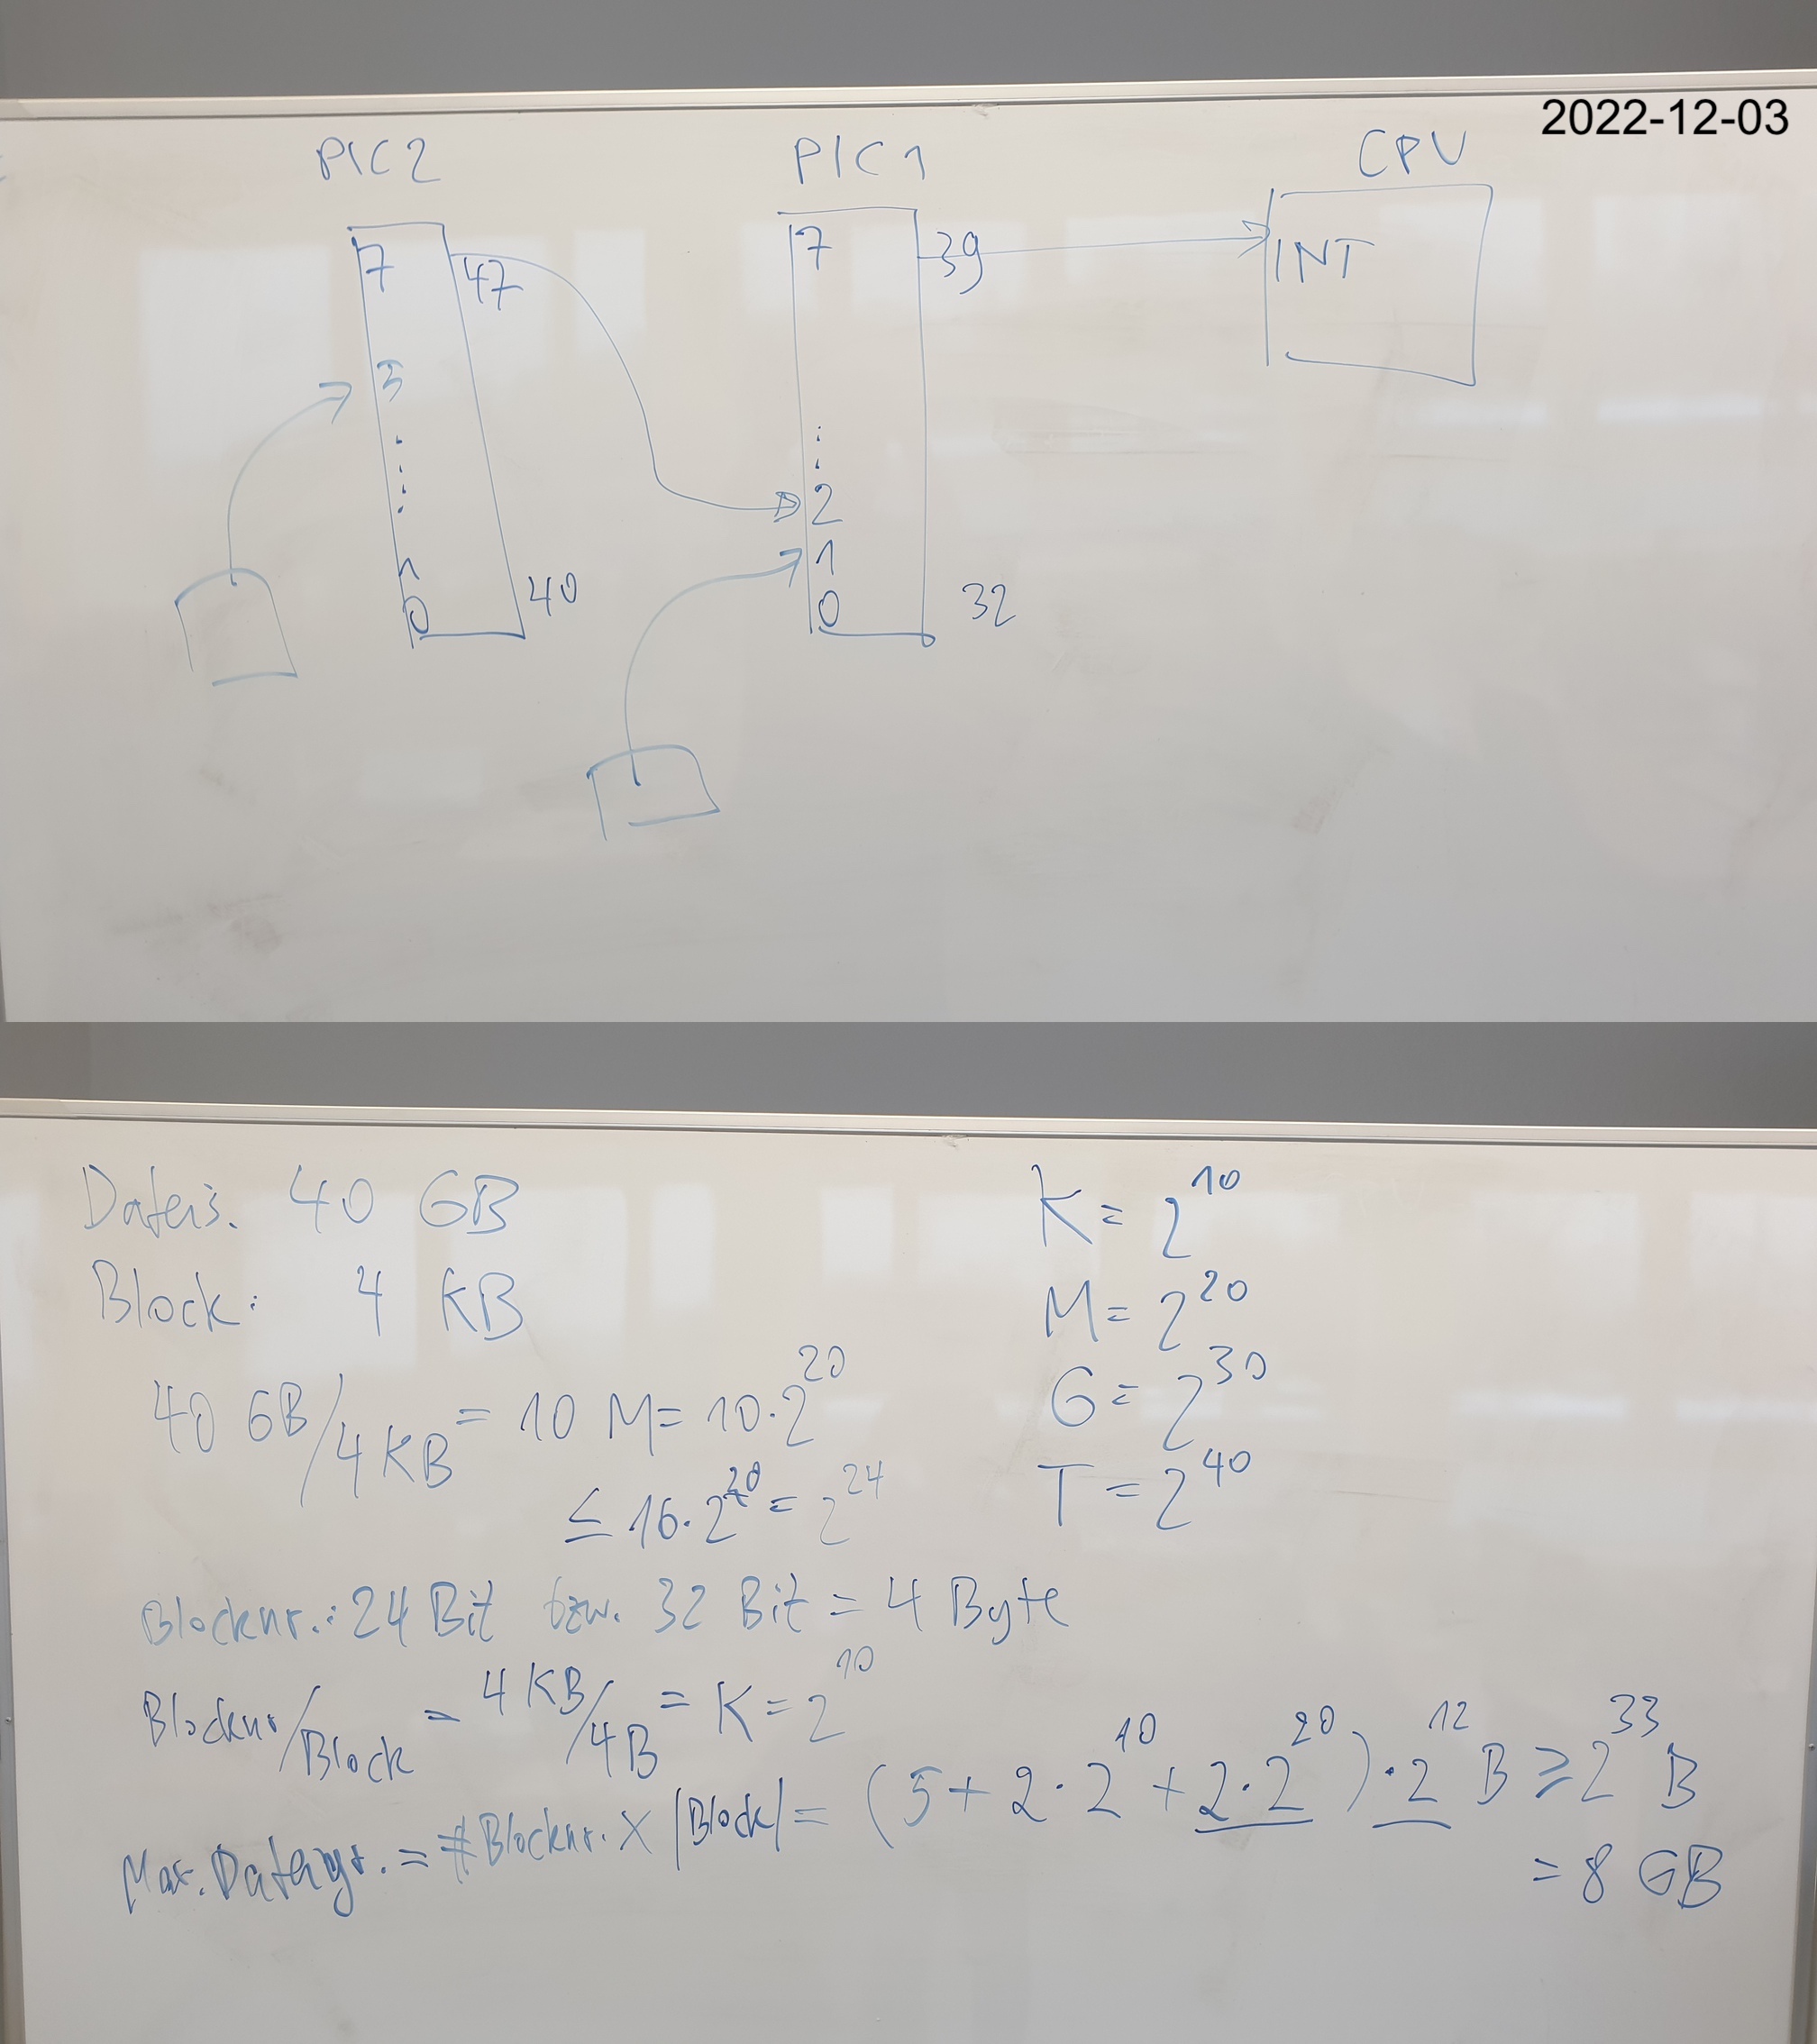 2022-12-03
PIC2 PIC1 CPU
7 47 7 39 INT
3
2
1 1
0 40 0 32
Dateis. 40 GB K = 2^10
Block: 4 KB M = 2^20
40 GB/4KB = 10 M = 10·2^20 G = 2^30
≤ 16·2^20 = 2^24 T = 2^40
Blocknr.: 24 Bit bzw. 32 Bit = 4 Byte
Blocknr/Block = 4 KB/4B = K = 2^10
Max. Dateigr. = #Blocknr. × |Block| = (5 + 2·2^10 + 2·2^20)·2^12 B ≥ 2^33 B
= 8 GB